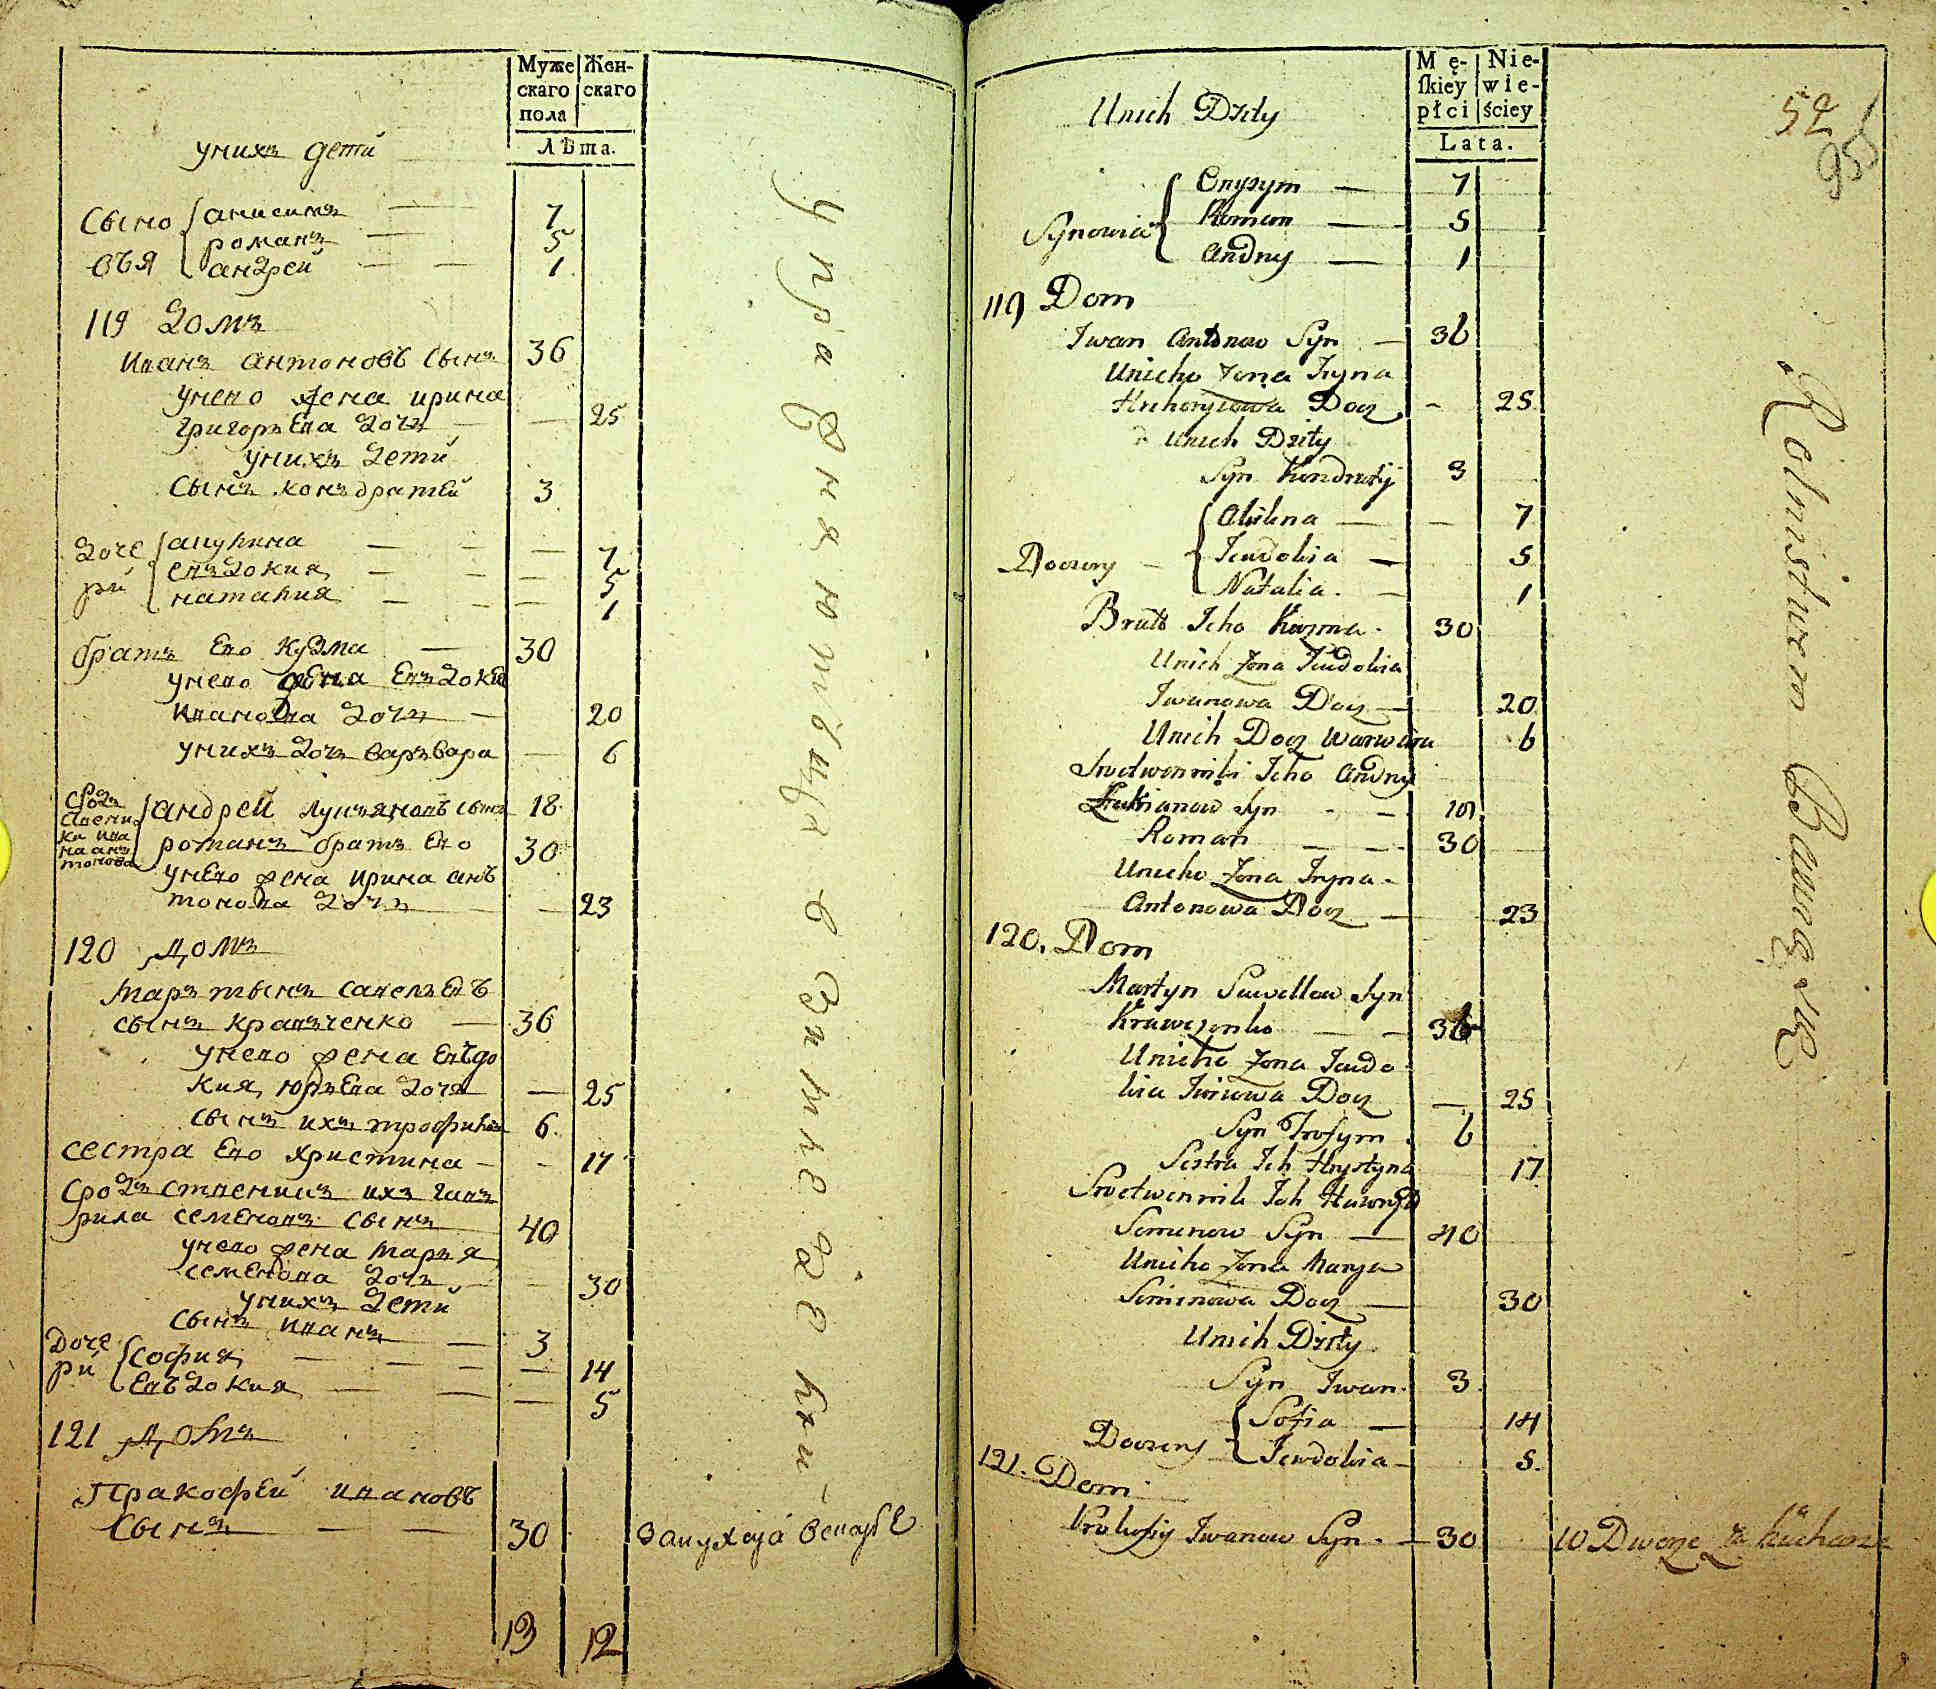 Муже
скаго
пола
Жен-
скаго
Лѣта.
унихъ дети
Сыно
вья
анисимъ — 7
романъ — 5
андрей — — 1
119 домъ
Иванъ антоновъ Сынъ 36
унево жена ирина
григорьева дочь — 25
унихъ дети
Сынъ конъдратей 3
доче
ри
акулина — — — 7
евъдокия — — — 5
наталия — — — 1
братъ Ево Кузма — 30
унево жена Евъдокия
Иванова дочь — 20
унихъ дочь варъвара — 6
андрей лукъяновъ сынъ 18
романъ братъ Ево 30
унево жена ирина анъ
тонова дочь — 23
120 домъ
мартынъ савельевъ
сынъ кравъченко — 36
унево жена Евъдо
кия, юрьева дочь — 25
сынъ ихъ трофимъ 6
сестра Ево христина — - 17
сродъственикъ ихъ гавъ
рила семеновъ сынъ 40
унево жена марья
семенова дочь — 30
унихъ дети
сынъ иванъ — 3
Доче
ри
софия, — — — 14
Евъдокия — — 5
121 домъ
Пракофей ивановъ
Сынъ — — 30
13 12
упражняютъца в Земледеленіи
Mę-
skiey
płci
Nie-
wie-
ściey
Lata.
52
95
Unich Dzity
Synowia
Onysym — 7
Roman — 5
Andry — 1
119 Dom
Iwan Antonow Syn — 36
Unicho Zona Iryna
Hrehoryiowa Docz - 25
Unich Dzity
Syn Kondratij 3
Doczery —
Akilina — — 7
Jewdokia — 5
Natalia. — 1
Bratt Jeho Kuzma. 30
Unich Zona Jewdokia
Iwanowa Docz — 20
Unich Docz Warwara 6
Srodwennik Jeho Andry
Łukianow Syn - — 18
Roman — — 30
Unicho Zona Iryna
Antonowa Docz — 23
120. Dom
Martyn Sawellow Syn
Krawczenko — — 36
Unicho Zona Jewdo
kia Juriowa Docz — 25
Syn Trofym. 6
Sestra Ich Hrystyna 17
Srodwennik Ich Hawryło
Semenow Syn — 40
Unicho Zona Marya
Semenowa Docz — 30
Unich Dzity
Syn Iwan. 3
Doczery —
Sofia — 14
Jewdokia — 5.
121. Dom
Prokofiy Iwanow Syn. — 30 W Dworze za kucharza
Rolnistwem Bawią się